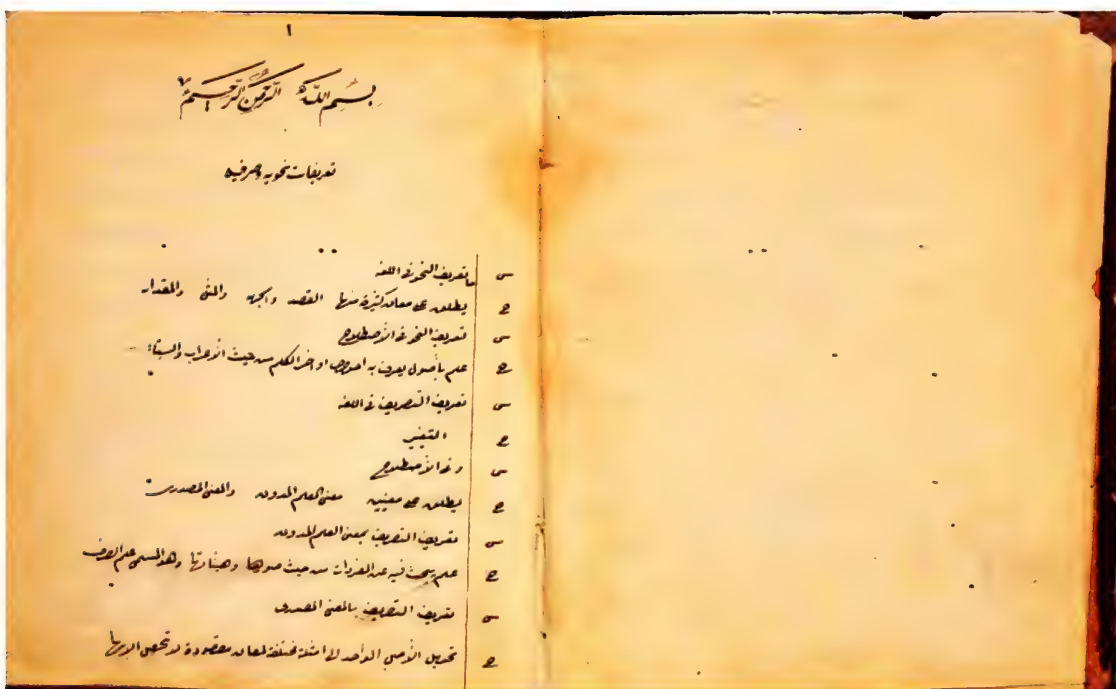 ١
بسم الله الرحمن الرحيم
تعريفات نحويه وصرفيه
س ما تعريف النحو في اللغه
ج يطلق على معان كثيرة منها القصد والجهه والمثل والمقدار
س تعريف النحو في الأصطلاح
ج علم بأصول يعرف به احوال اواخر الكلم من حيث الأعراب والبناء
س تعريف التصريف في اللغه
ج التغيير
س وفي الأصطلاح
ج يطلق على معنيين معنى العلم المدون والمعنى المصدرى
س تعريف التصريف بمعنى العلم المدون
ج علم يبحث فيه عن المفردات من حيث صورها وهيئاتها وهو المسمى علم الصرف
س تعريف التصريف بالمعنى المصدرى
ج تحويل الأصل الواحد الى امثلة مختلفة لمعان مقصودة لا تحصل الا بها